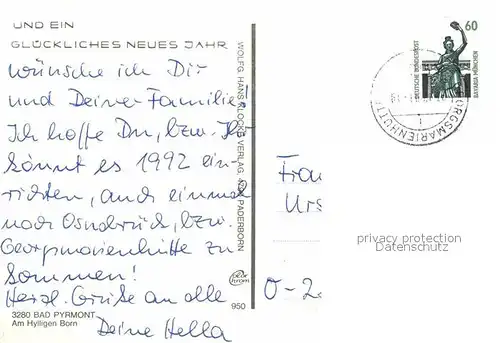 UND EIN
GLÜCKLICHES NEUES JAHR
wünsche ich Dir
und Deiner Familie!
Ich hoffe Du, bzw. Ihr
könnt es 1992 ein-
richten, auch einmal
nach Osnabrück, bzw.
Georgsmarienhütte zu
kommen!
Herzl. Grüße an alle
Deine Hella
3280 BAD PYRMONT
Am Hylligen Born
WOLFG. HANS KLOCKE VERLAG, PADERBORN
950
60
DEUTSCHE BUNDESPOST
BAVARIA MÜNCHEN
ORGSMARIENHÜTTE
Frau
Urs
O-2
privacy protection
Datenschutz